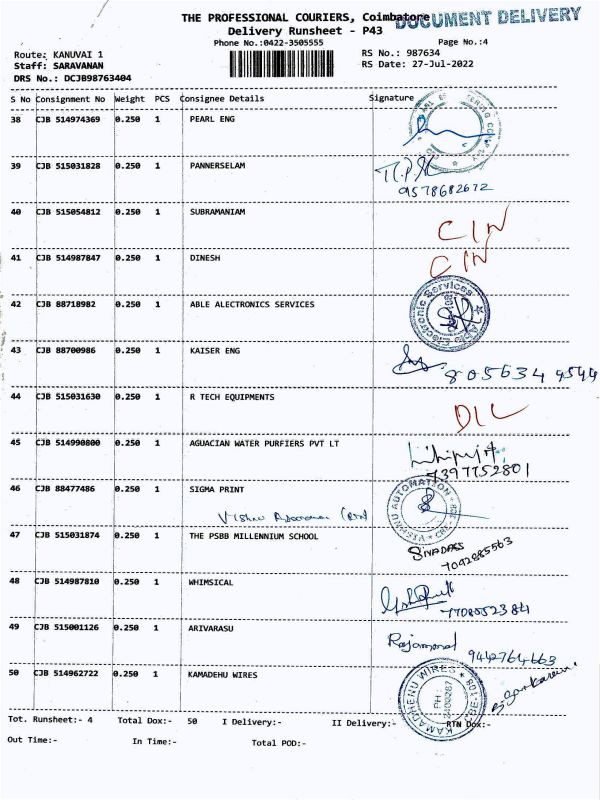 THE PROFESSIONAL COURIERS, Coimbatore
DOCUMENT DELIVERY
Delivery Runsheet - P43
Phone No.:0422-3505555
Page No.:4
Route: KANUVAI 1
RS No.: 987634
Staff: SARAVANAN
RS Date: 27-Jul-2022
DRS No.: DCJB98763404
S No Consignment No Weight PCS Consignee Details Signature
38 CJB 514974369 0.250 1 PEARL ENG
39 CJB 515031828 0.250 1 PANNERSELAM
9578682672
40 CJB 515054812 0.250 1 SUBRAMANIAM
CIN
41 CJB 514987847 0.250 1 DINESH
CIN
42 CJB 88718982 0.250 1 ABLE ALECTRONICS SERVICES
Able Electronic Services
43 CJB 88700986 0.250 1 KAISER ENG
8056349544
44 CJB 515031630 0.250 1 R TECH EQUIPMENTS
DIL
45 CJB 514990800 0.250 1 AGUACIAN WATER PURFIERS PVT LT
7397752801
46 CJB 88477486 0.250 1 SIGMA PRINT
AUTOMATION
Vishnu
47 CJB 515031874 0.250 1 THE PSBB MILLENNIUM SCHOOL
SIVADASS
7092885563
48 CJB 514987810 0.250 1 WHIMSICAL
7708552384
49 CJB 515001126 0.250 1 ARIVARASU
9442764663
50 CJB 514962722 0.250 1 KAMADEHU WIRES
KAMADHENU WIRES
Tot. Runsheet:- 4 Total Dox:- 50 I Delivery:- II Delivery:- RTN Dox:-
Out Time:- In Time:- Total POD:-